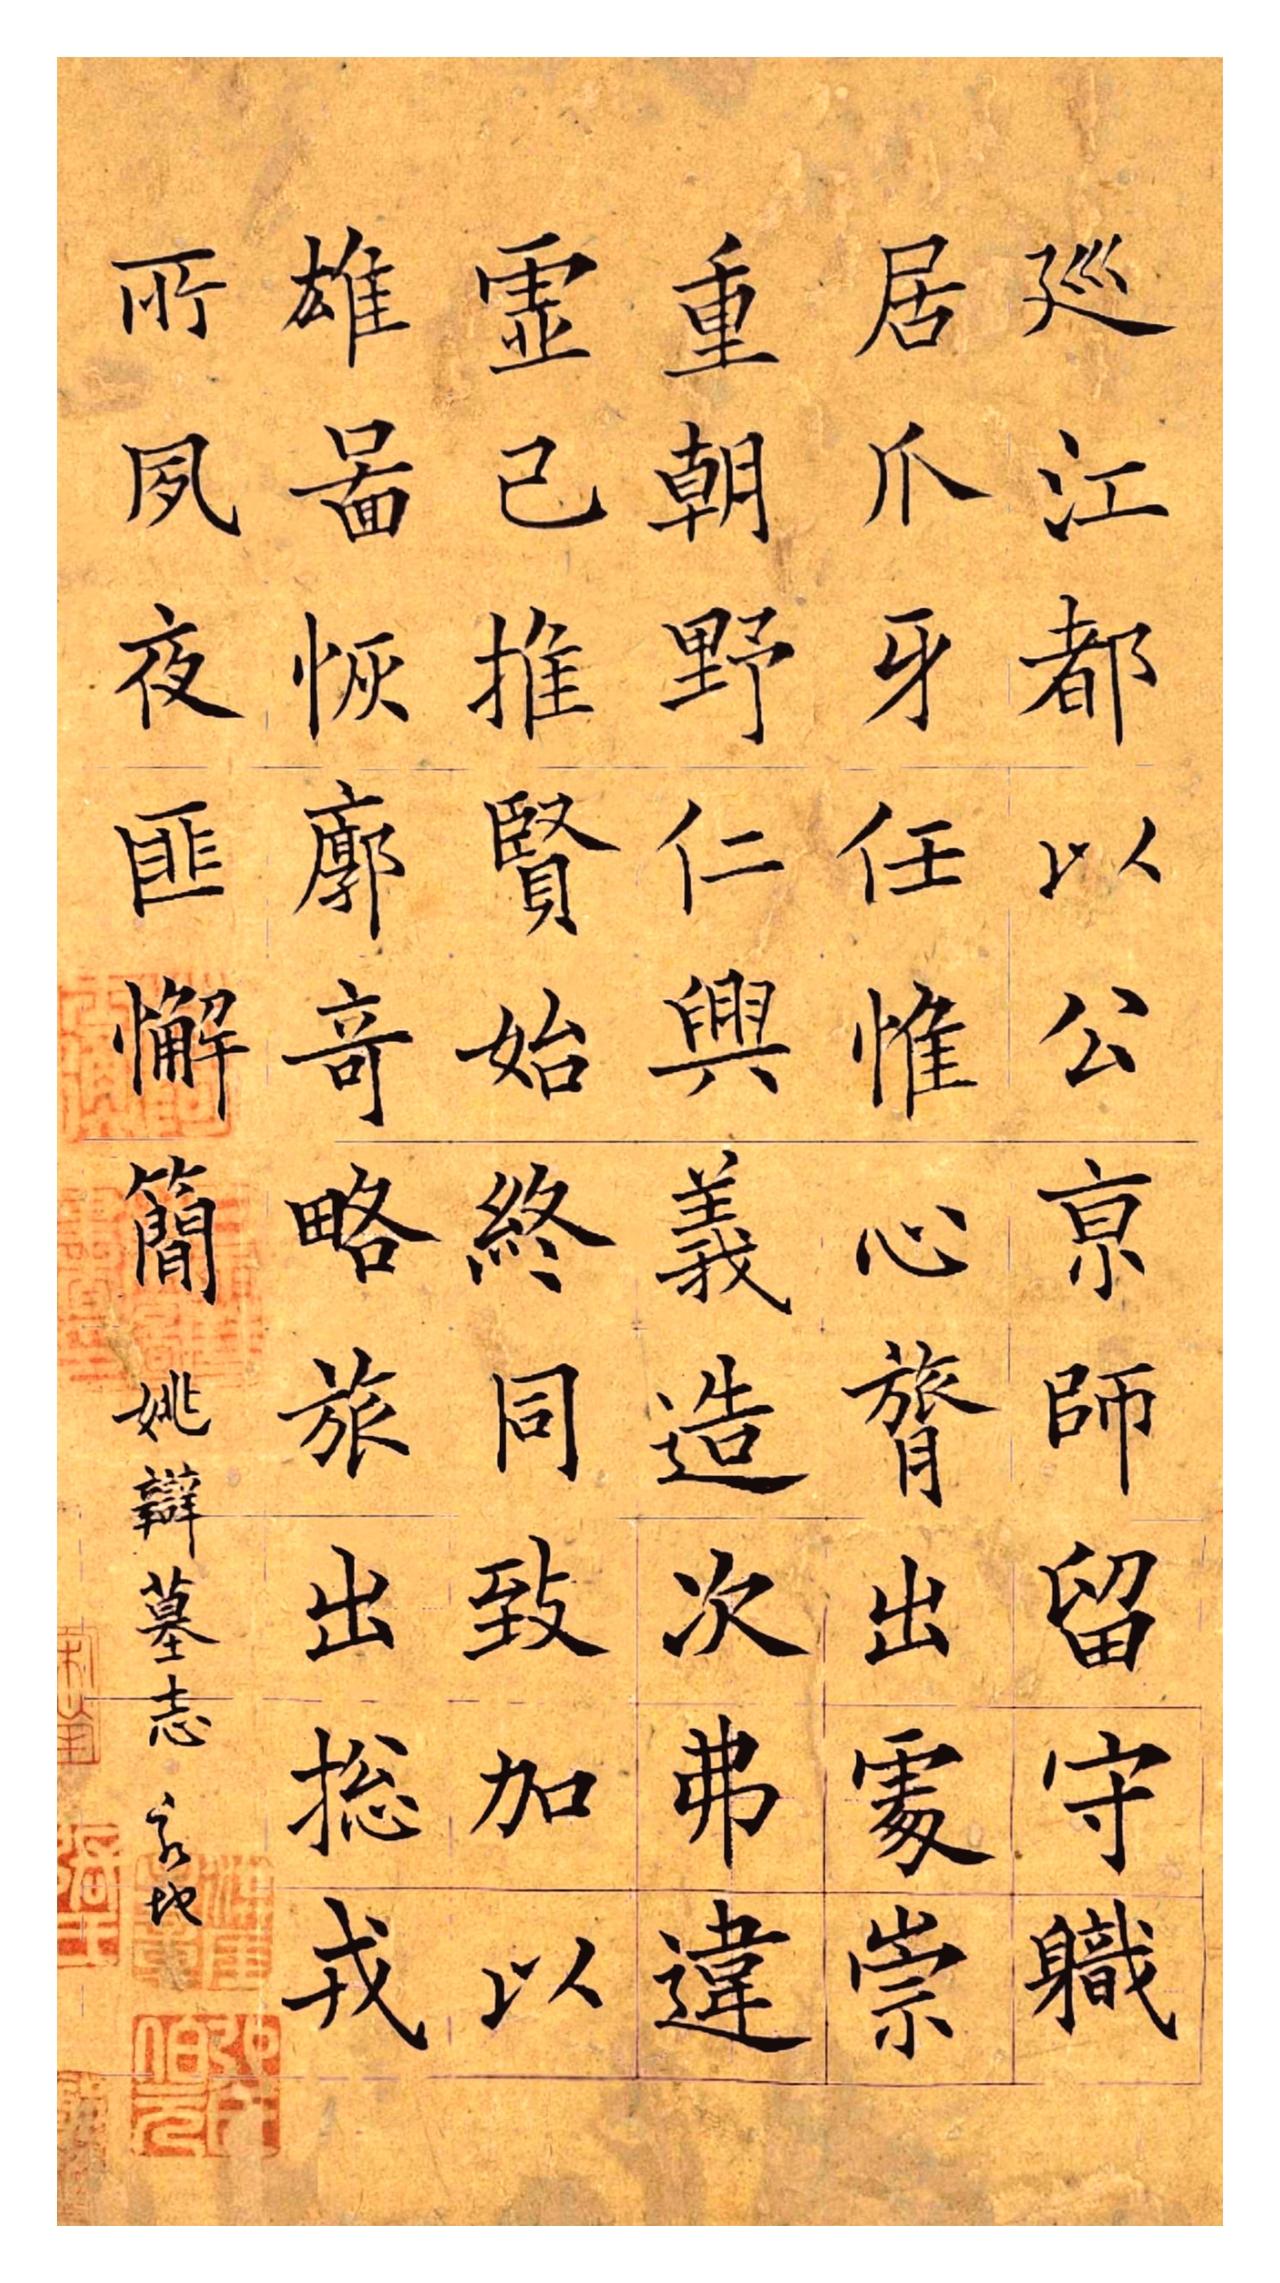 巡江都以公京師留守職
居爪牙任惟心膂出處崇
重朝野仁興義造次弗違
虛己推賢始終同致加以
雄圖恢廓奇略旅出總戎
所夙夜匪懈簡 姚辯墓志